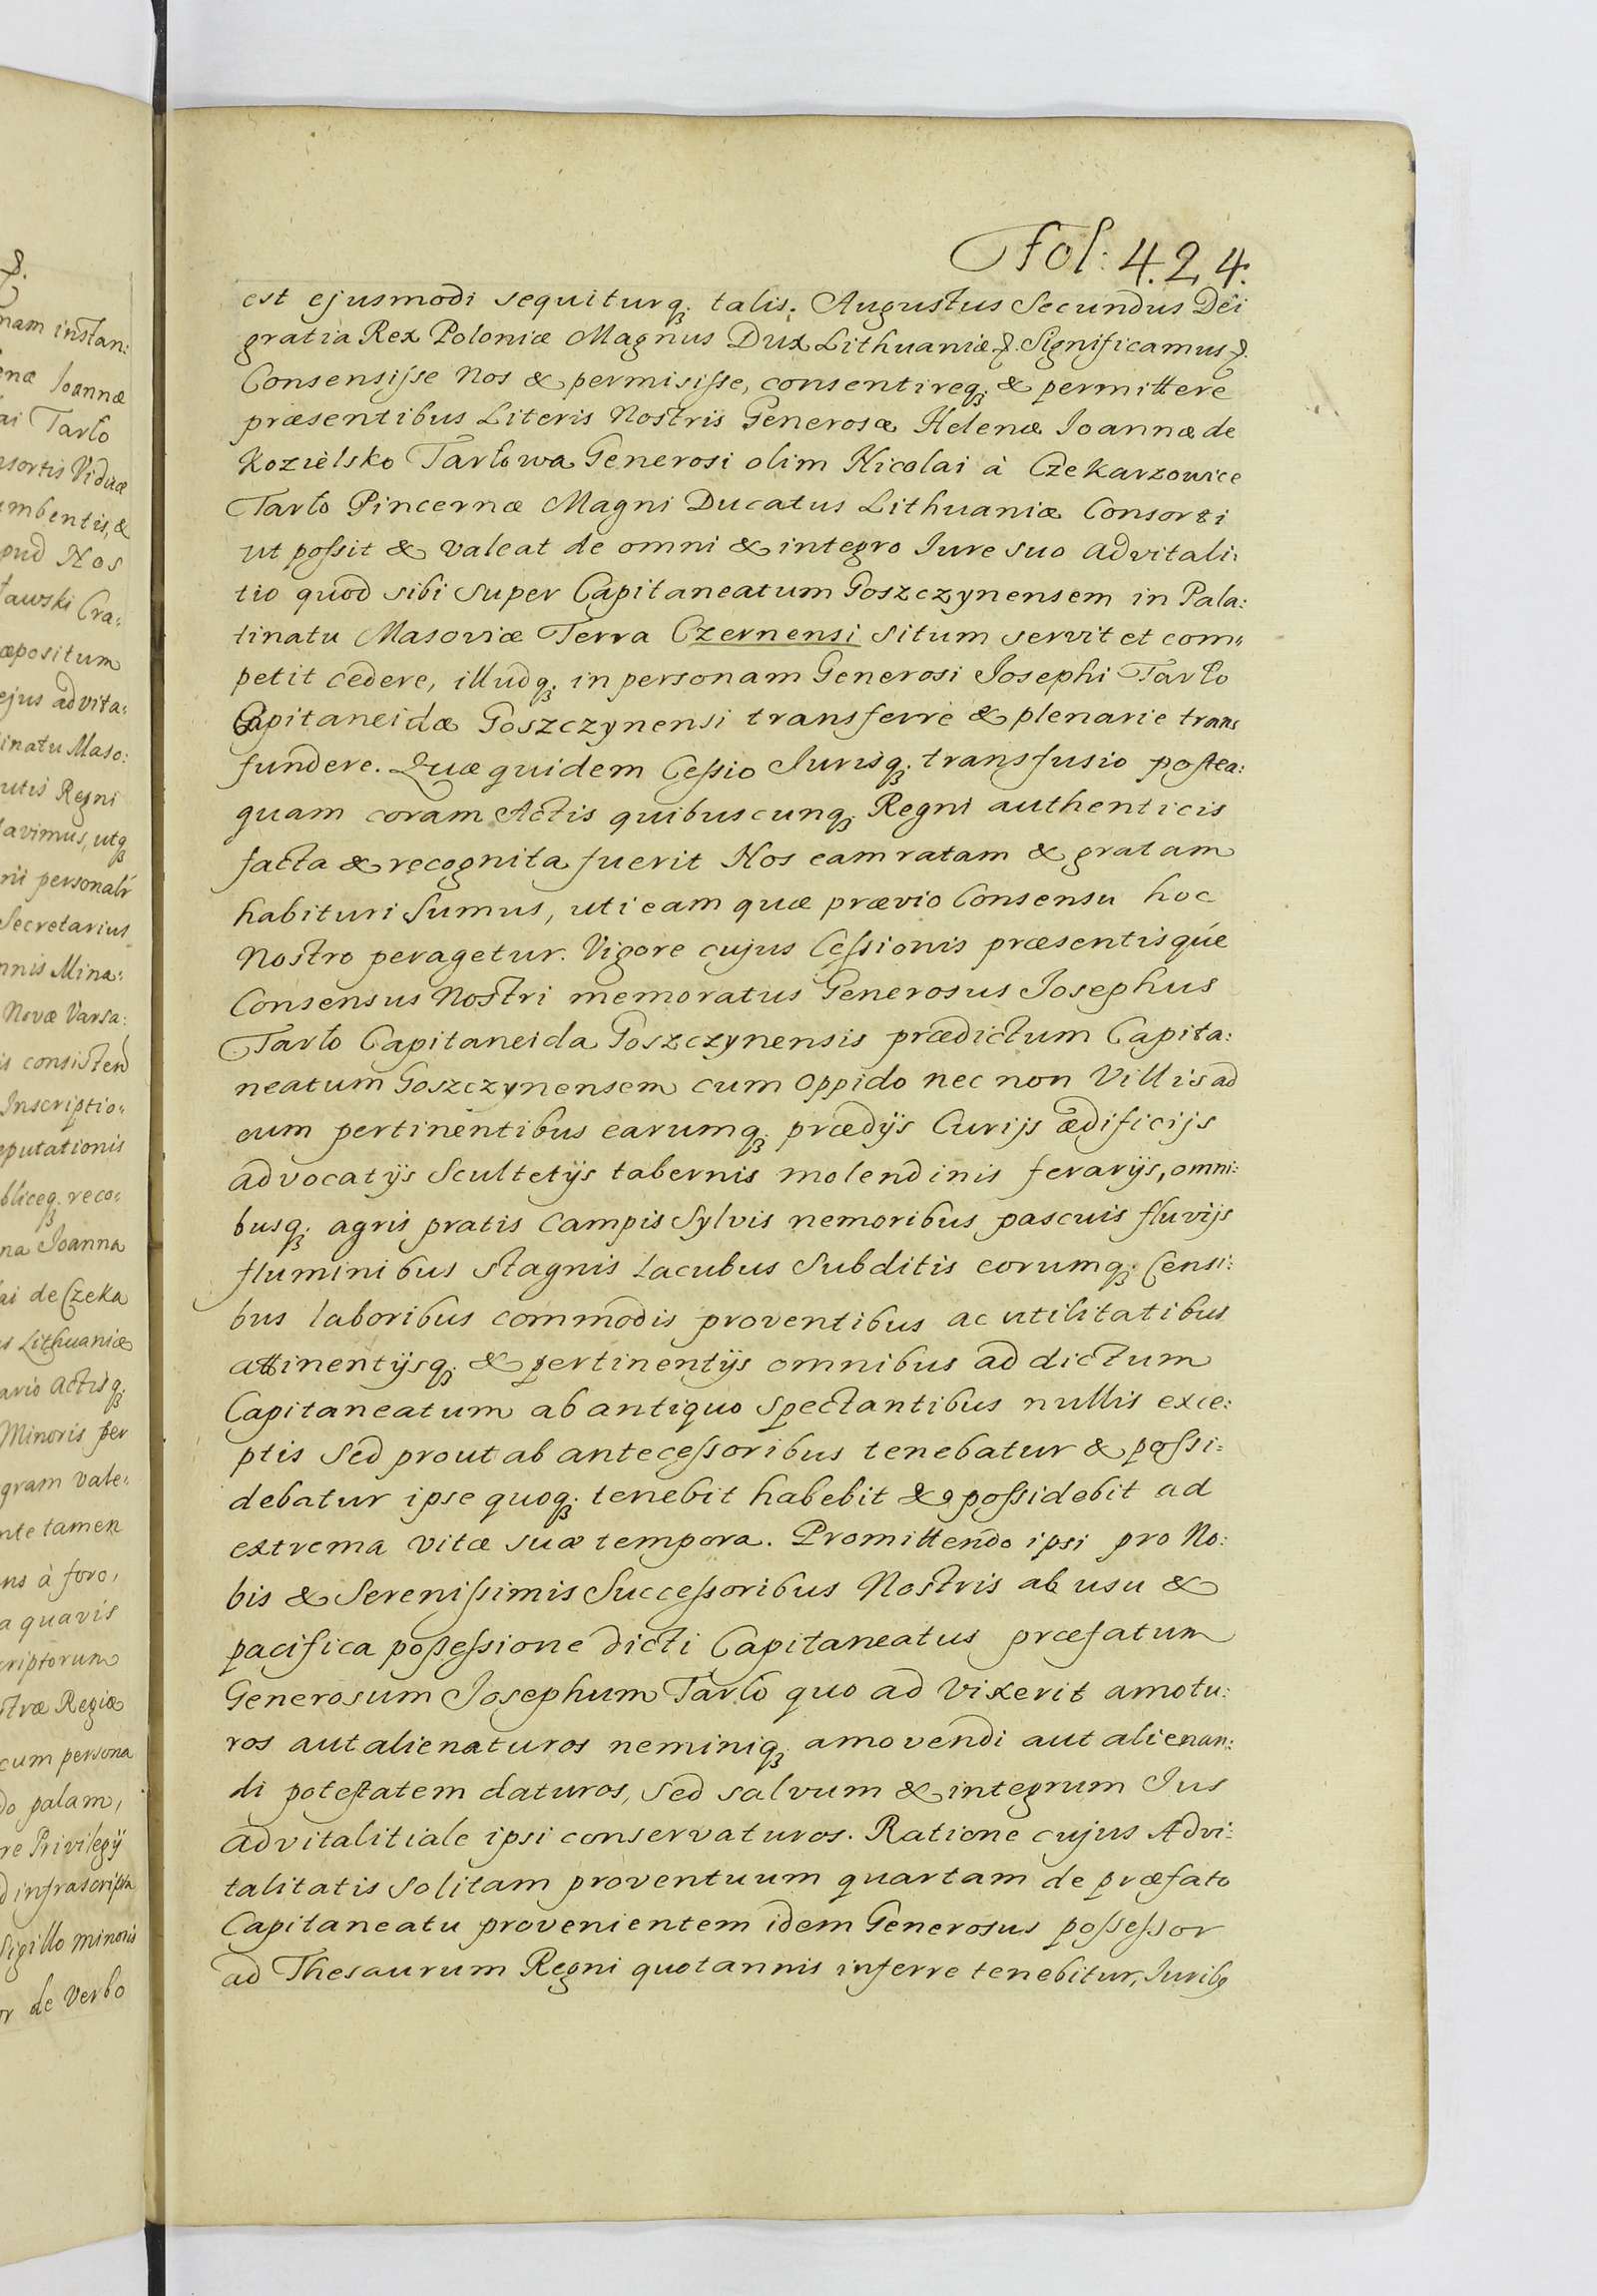 Fol: 424.
est ejusmodi sequiturq; talis; Augustus Secundus Dei
gratia Rex Poloniæ Magnus Dux Lithuaniæ &. Significamus &.
Consensisse Nos & permisisse, consentireq; & permittere
præsentibus Literis Nostris Generosæ Helenæ Joannæ de
Kozielsko Tarłowa Generosi olim Nicolai à Czekarzowice
Tarło Pincernæ Magni Ducatus Lithuaniæ Consorti
ut possit & valeat de omni & integro Jure suo advitali:
tio quod sibi super Capitaneatum Goszczynensem in Pala:
tinatu Masoviæ Terra Czernensi situm servit et com:
petit cedere, illudq; in personam Generosi Josephi Tarło
Capitaneidæ Goszczynensi transferre & plenarie trans
fundere. Quæ quidem Cessio Jurisq; transfusio postea:
quam coram Actis quibuscunq; Regni authenticis
facta & recognita fuerit Nos eam ratam & gratam
habituri sumus, uti eam quæ prævio Consensu hoc
Nostro peragetur. Vigore cujus Cessionis præsentisque
Consensus Nostri memoratus Generosus Josephus
Tarło Capitaneida Goszczynensis prædictum Capita:
neatum Goszczynensem cum Oppido nec non Villis ad
eum pertinentibus earumq; prædijs Curijs ædificijs
advocatijs Scultetijs tabernis molendinis ferarijs, omni:
busq; agris pratis Campis Sylvis nemoribus pascuis fluvijs
fluminibus stagnis Lacubus Subditis eorumq; Censi:
bus laboribus commodis proventibus ac utilitatibus
attinentijsq; & pertinentijs omnibus ad dictum
Capitaneatum ab antiquo spectantibus nullis exce:
ptis sed prout ab antecessoribus tenebatur & possi:
debatur ipse quoq; tenebit habebit & possidebit ad
extrema vitæ suæ tempora. Promittendo ipsi pro No:
bis & Serenissimis Successoribus Nostris ab usu &
pacifica possessione dicti Capitaneatus præfatum
Generosum Josephum Tarło quo ad vixerit amotu:
ros aut alienaturos neminiq; amovendi aut alienan:
di potestatem daturos, sed salvum & integrum Jus
advitalitiale ipsi conservaturos. Ratione cujus Advi:
talitatis solitam proventuum quartam de præfato
Capitaneatu provenientem idem Generosus possessor
ad Thesaurum Regni quotannis inferre tenebitur, Juribq